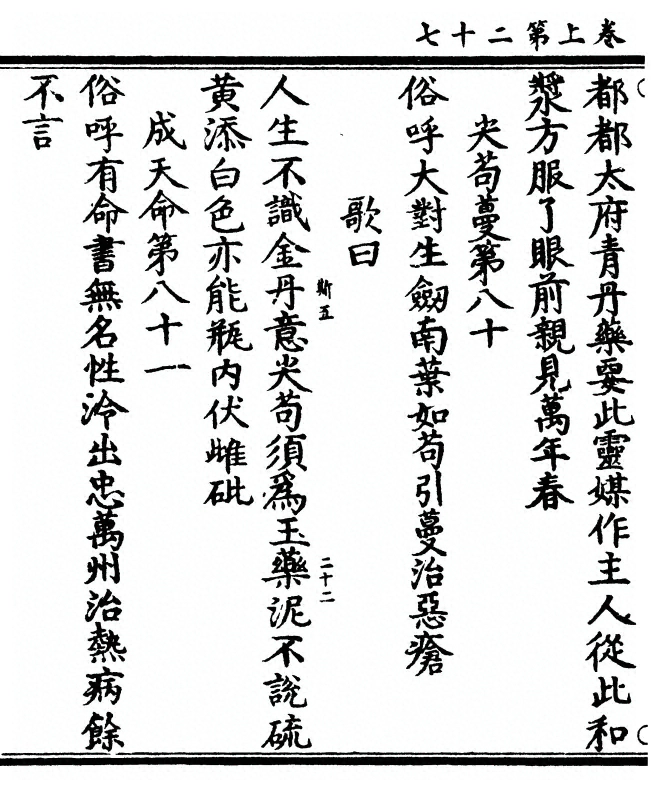 卷上第二十七
都都太府青丹藥要此靈媒作主人從此和
漿方服了眼前親見萬年春
尖苟蔓第八十
俗呼大對生劔南葉如苟引蔓治惡瘡
歌曰
斯五
二十二
人生不識金丹意尖苟須爲玉藥泥不說硫
黃添白色亦能瓶内伏雌砒
成天命第八十一
俗呼有命書無名性冷出忠萬州治熱病餘
不言